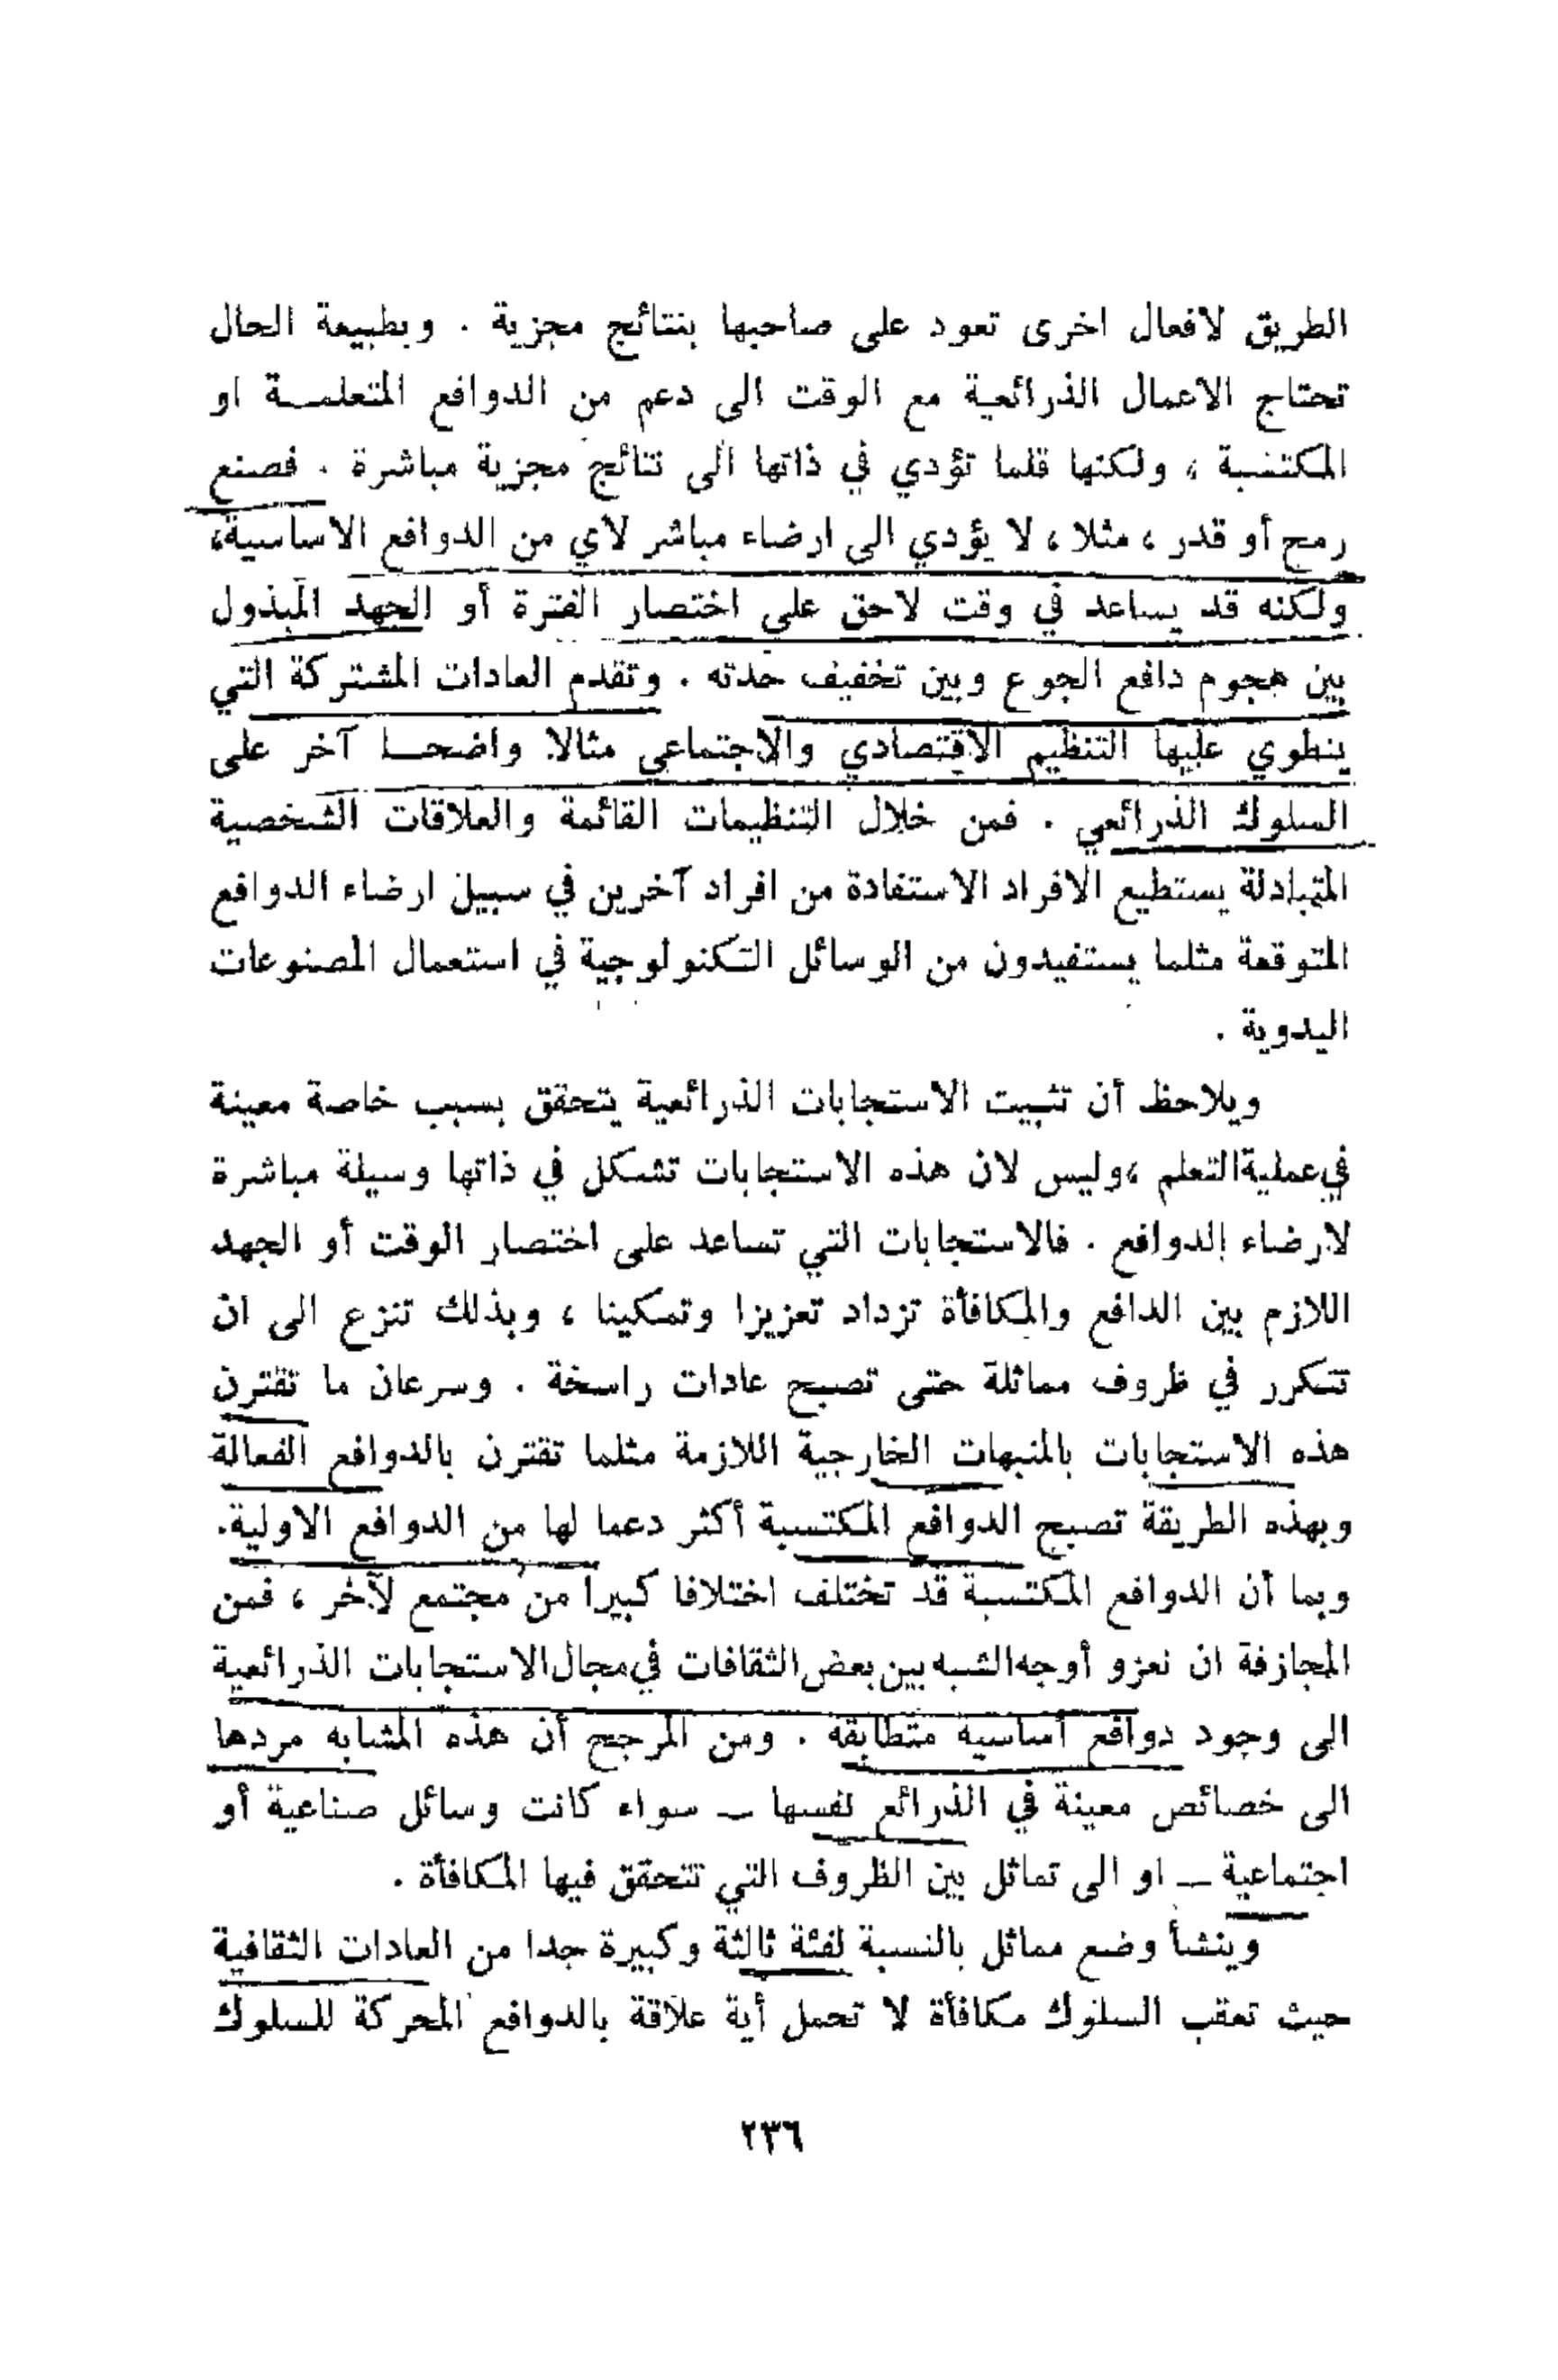 الطريق لافعال اخرى تعود على صاحبها بنتائج مجزية . وبطبيعة الحال
تحتاج الاعمال الذرائعية مع الوقت الى دعم من الدوافع المتعلمة او
المكتسبة ، ولكنها قلما تؤدي في ذاتها الى نتائج مجزية مباشرة . فصنع
رمح أو قدر ، مثلا ، لا يؤدي الى ارضاء مباشر لاي من الدوافع الاساسية،
ولكنه قد يساعد في وقت لاحق على اختصار الفترة أو الجهد المبذول
بين هجوم دافع الجوع وبين تخفيف حدته . وتقدم العادات المشتركة التي
ينطوي عليها التنظيم الاقتصادي والاجتماعي مثالا واضحا آخر على
السلوك الذرائعي . فمن خلال التنظيمات القائمة والعلاقات الشخصية
المتبادلة يستطيع الافراد الاستفادة من افراد آخرين في سبيل ارضاء الدوافع
المتوقعة مثلما يستفيدون من الوسائل التكنولوجية في استعمال المصنوعات
اليدوية .
ويلاحظ أن تثبيت الاستجابات الذرائعية يتحقق بسبب خاصة معينة
في عملية التعلم ،وليس لان هذه الاستجابات تشكل في ذاتها وسيلة مباشرة
لارضاء الدوافع . فالاستجابات التي تساعد على اختصار الوقت أو الجهد
اللازم بين الدافع والمكافأة تزداد تعزيزا وتمكينا ، وبذلك تنزع الى ان
تتكرر في ظروف مماثلة حتى تصبح عادات راسخة . وسرعان ما تقترن
هذه الاستجابات بالمنبهات الخارجية اللازمة مثلما تقترن بالدوافع الفعالة
وبهذه الطريقة تصبح الدوافع المكتسبة أكثر دعما لها من الدوافع الاولية.
وبما أن الدوافع المكتسبة قد تختلف اختلافا كبيرا من مجتمع لآخر ، فمن
المجازفة ان نعزو أوجه الشبه بين بعض الثقافات في مجال الاستجابات الذرائعية
الى وجود دوافع أساسية متطابقة . ومن المرجح أن هذه المشابه مردها
الى خصائص معينة في الذرائع نفسها ــ سواء كانت وسائل صناعية أو
اجتماعية ــ او الى تماثل بين الظروف التي تتحقق فيها المكافأة .
وينشأ وضع مماثل بالنسبة لفئة ثالثة وكبيرة جدا من العادات الثقافية
حيث تعقب السلوك مكافأة لا تحمل أية علاقة بالدوافع المحركة للسلوك
٢٣٦